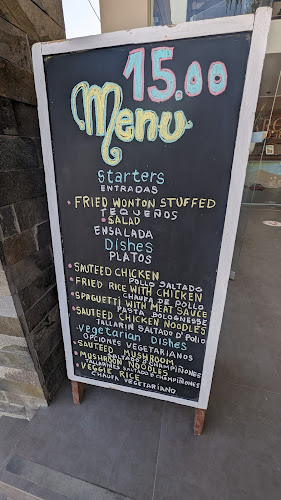 15.00
Menu
Starters
ENTRADAS
• FRIED WONTON STUFFED
TEQUEÑOS
• SALAD
ENSALADA
Dishes
PLATOS
• SAUTEED CHICKEN
POLLO SALTADO
• FRIED RICE WITH CHICKEN
CHAUFA DE POLLO
• SPAGUETTI WITH MEAT SAUCE
PASTA BOLOGNESSE
• SAUTEED CHICKEN NOODLES
TALLARIN SALTADO D POLLO
Vegetarian Dishes
OPCIONES VEGETARIANOS
• SAUTEED MUSHROOM
SALTADO D CHAMPIÑONES
• MUSHROOM NOODLES
TALLARINES SALTADO D CHAMPIÑONES
• VEGGIE RICE
CHAUFA VEGETARIANO